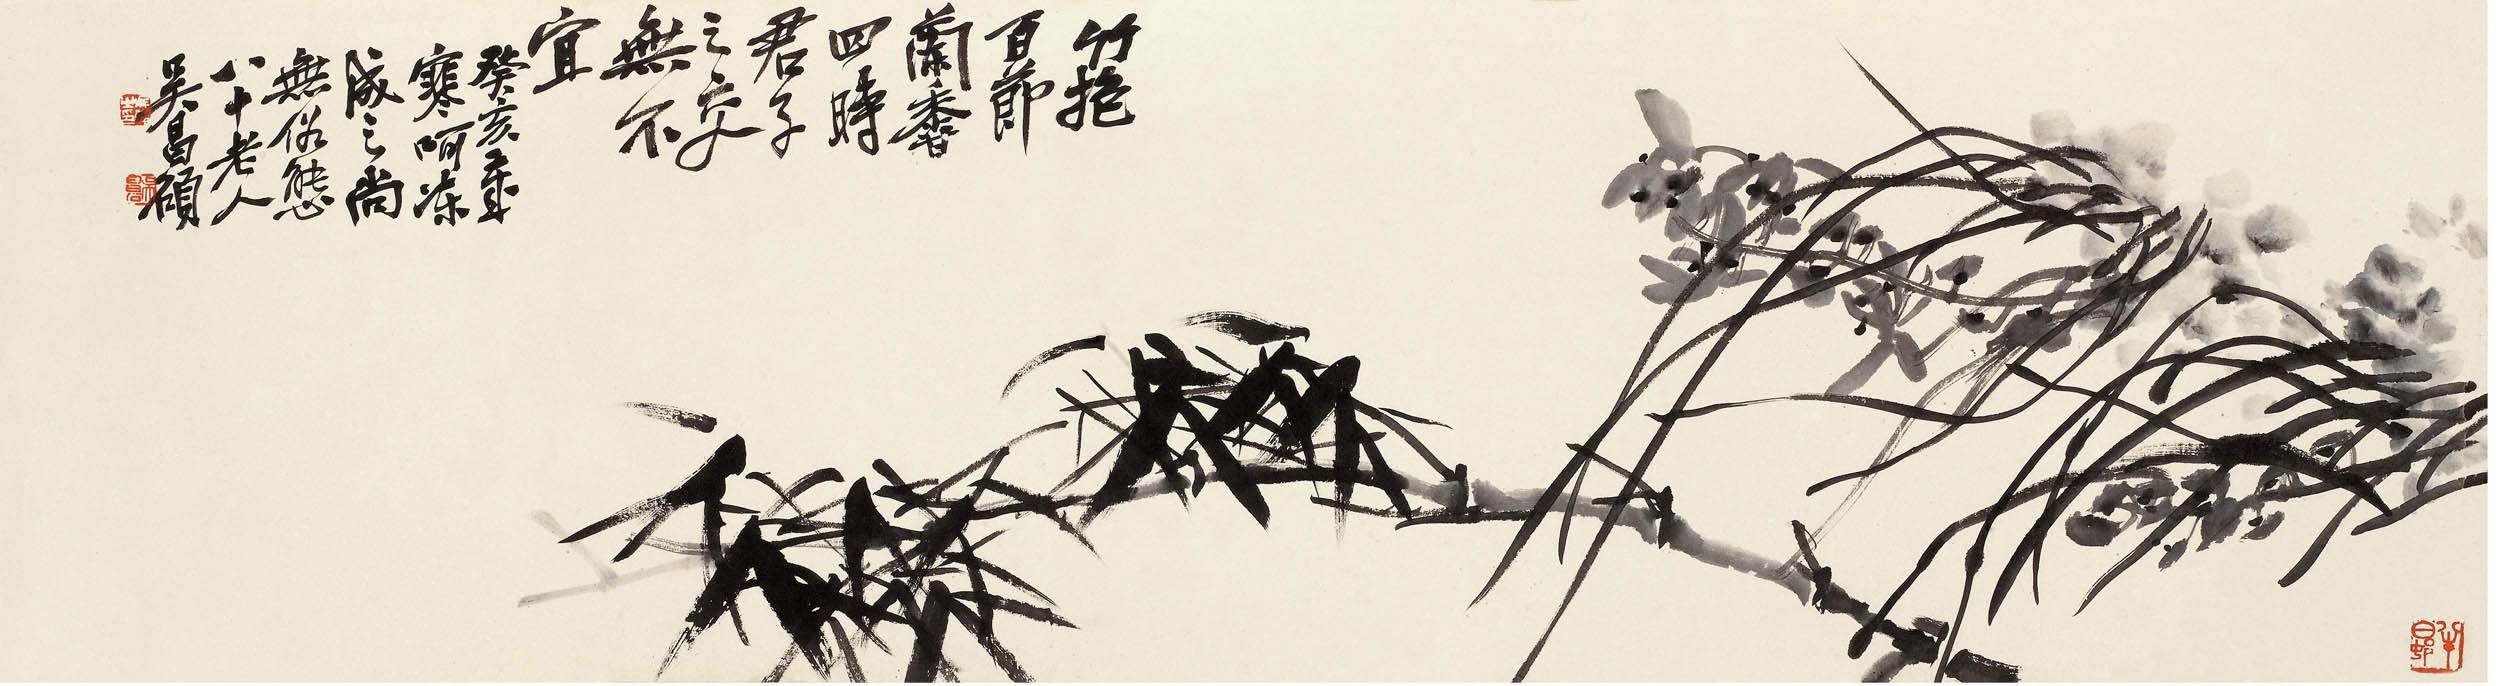 竹抱
百節
蘭香
四時
君子
之交
無不
宜
癸亥年
寒呵凍
成之尚
無俗態
八十老人
吳昌碩